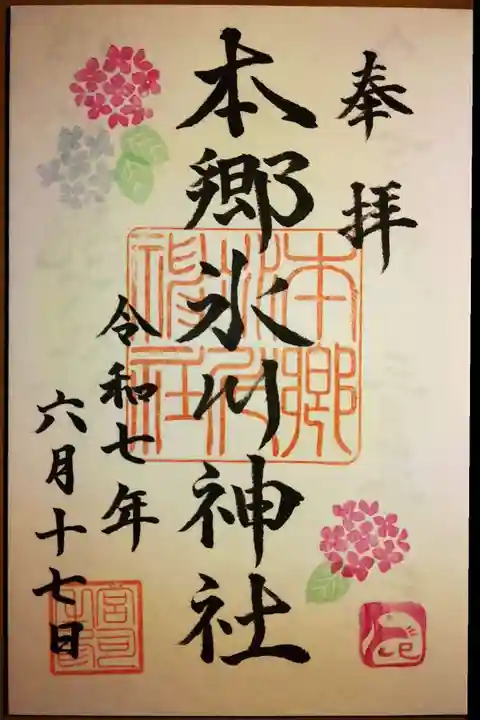 奉拝
本郷氷川神社
令和七年
六月十七日
本郷
氷川
神社